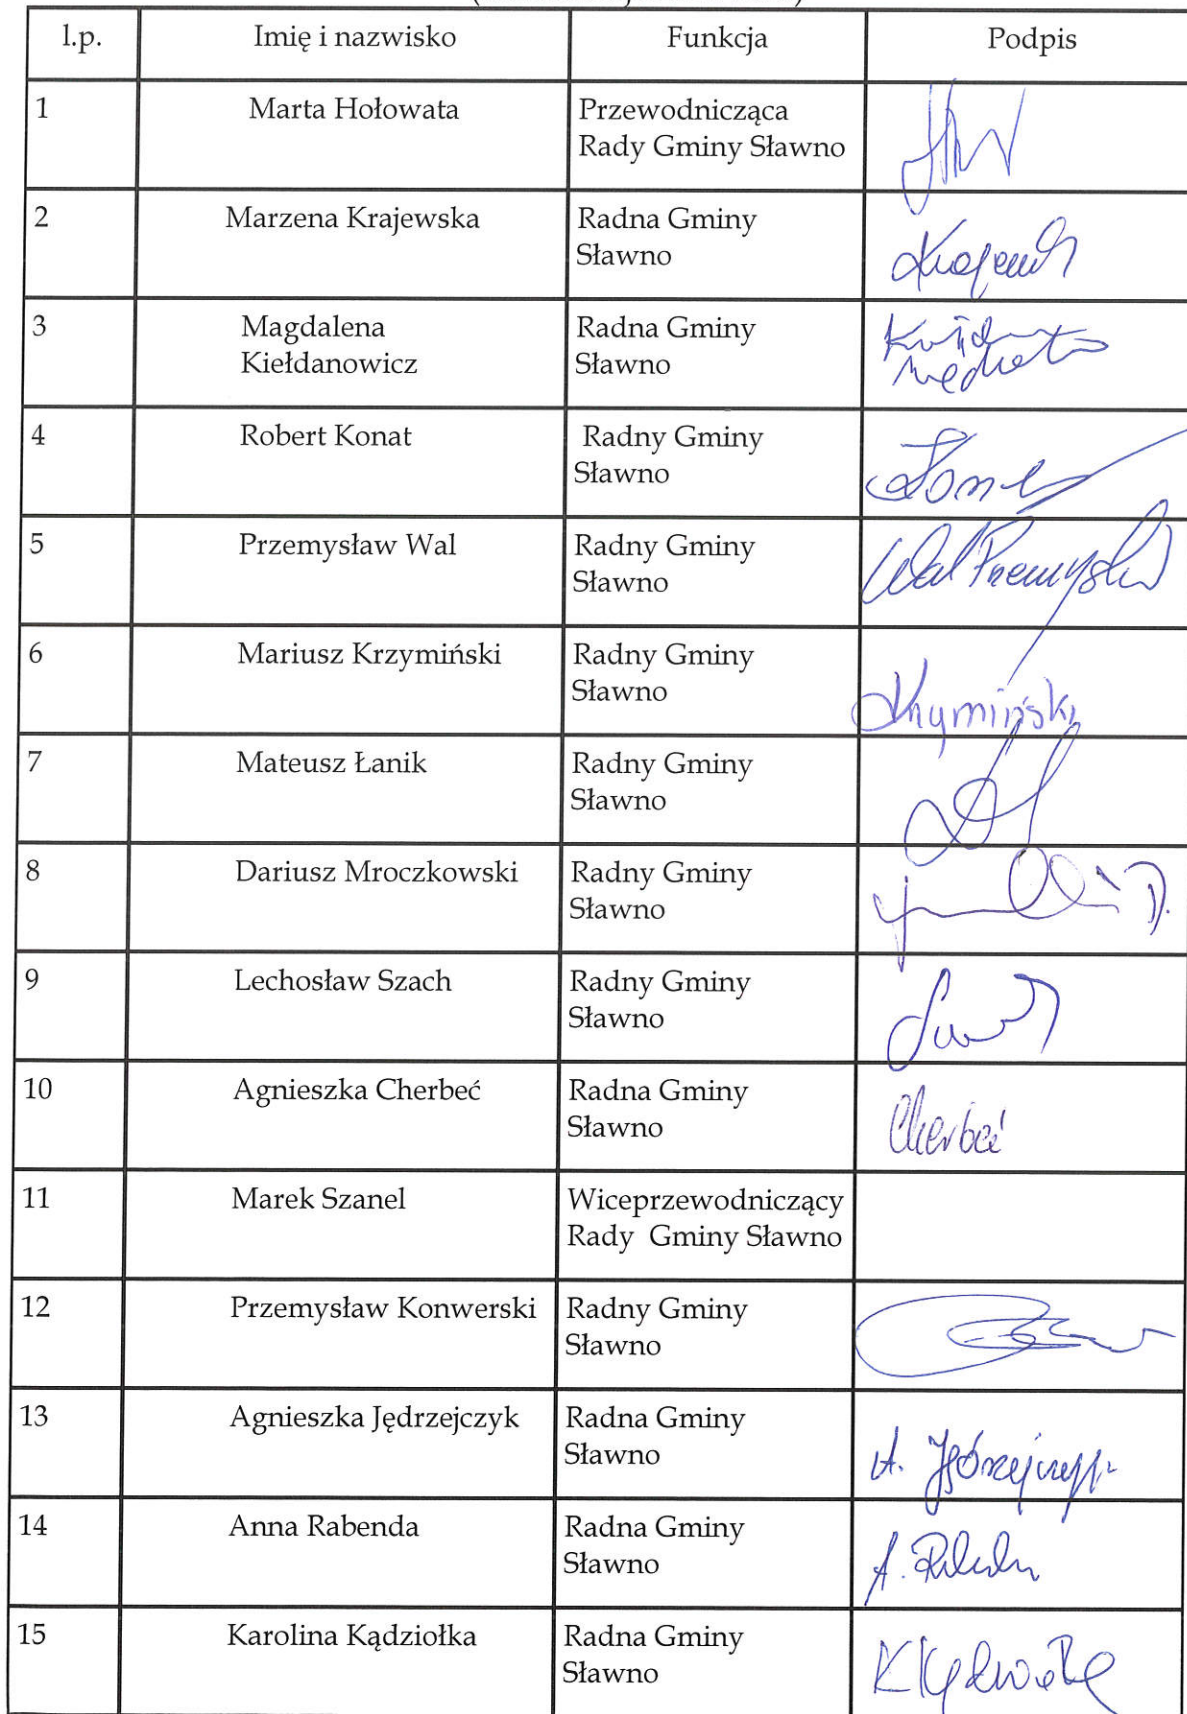 l.p. Imię i nazwisko Funkcja Podpis
1 Marta Hołowata Przewodnicząca
Rady Gminy Sławno
2 Marzena Krajewska Radna Gminy
Sławno
3 Magdalena Radna Gminy
Kiełdanowicz Sławno
4 Robert Konat Radny Gminy
Sławno
5 Przemysław Wal Radny Gminy
Sławno Wal Przemysław
6 Mariusz Krzymiński Radny Gminy
Sławno Krzymiński
7 Mateusz Łanik Radny Gminy
Sławno
8 Dariusz Mroczkowski Radny Gminy
Sławno
9 Lechosław Szach Radny Gminy
Sławno
10 Agnieszka Cherbeć Radna Gminy
Sławno Cherbeć
11 Marek Szanel Wiceprzewodniczący
Rady Gminy Sławno
12 Przemysław Konwerski Radny Gminy
Sławno
13 Agnieszka Jędrzejczyk Radna Gminy
Sławno
14 Anna Rabenda Radna Gminy
Sławno
15 Karolina Kądziołka Radna Gminy
Sławno